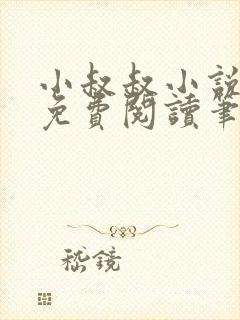 小叔叔小說
免費閱讀筆
嵇鏡